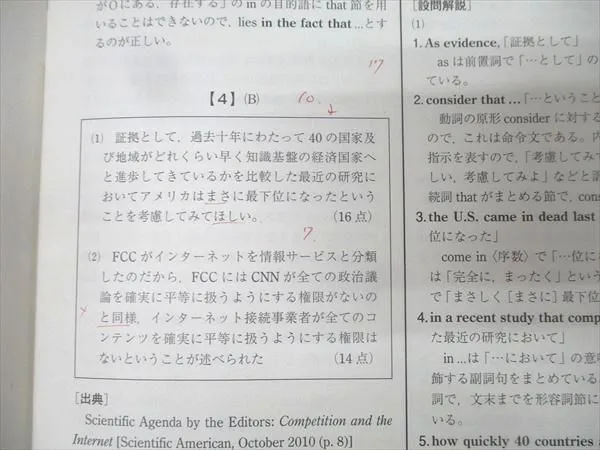 がOにある，存在する」の in の目的語に that 節を用
いることはできないので，lies in the fact that ...とす
るのが正しい。
17
【4】(B)
10.
(1) 証拠として，過去十年にわたって 40 の国家及
び地域がどれくらい早く知識基盤の経済国家へ
と進歩してきているかを比較した最近の研究に
おいてアメリカはまさに最下位になったという
ことを考慮してみてほしい。 (16 点)
7.
(2) FCC がインターネットを情報サービスと分類
したのだから，FCC には CNN が全ての政治議
論を確実に平等に扱うようにする権限がないの
と同様，インターネット接続事業者が全てのコ
ンテンツを確実に平等に扱うようにする権限は
ないということが述べられた (14 点)
[出典]
Scientific Agenda by the Editors: Competition and the
Internet [Scientific American, October 2010 (p. 8)]
[設問解説]
(1)
1. As evidence,「証拠として」
as は前置詞で「…として」の
ている。
2. consider that ...「…というこ
動詞の原形 consider に対する
ので，これは命令文である。内
指示を表すので，「考慮してみて
しい，考慮してみよ」などと訳
続詞 that がまとめる節で，cons
3. the U.S. came in dead last
位になった」
come in〈序数〉で「…位に
は「完全に，まったく」という
で「まさしく［まさに］最下位
4. in a recent study that comp
た最近の研究において」
in ...は「…において」の意
飾する副詞句をまとめている。
詞で，文末までを形容詞節に
いる。
5. how quickly 40 countries a